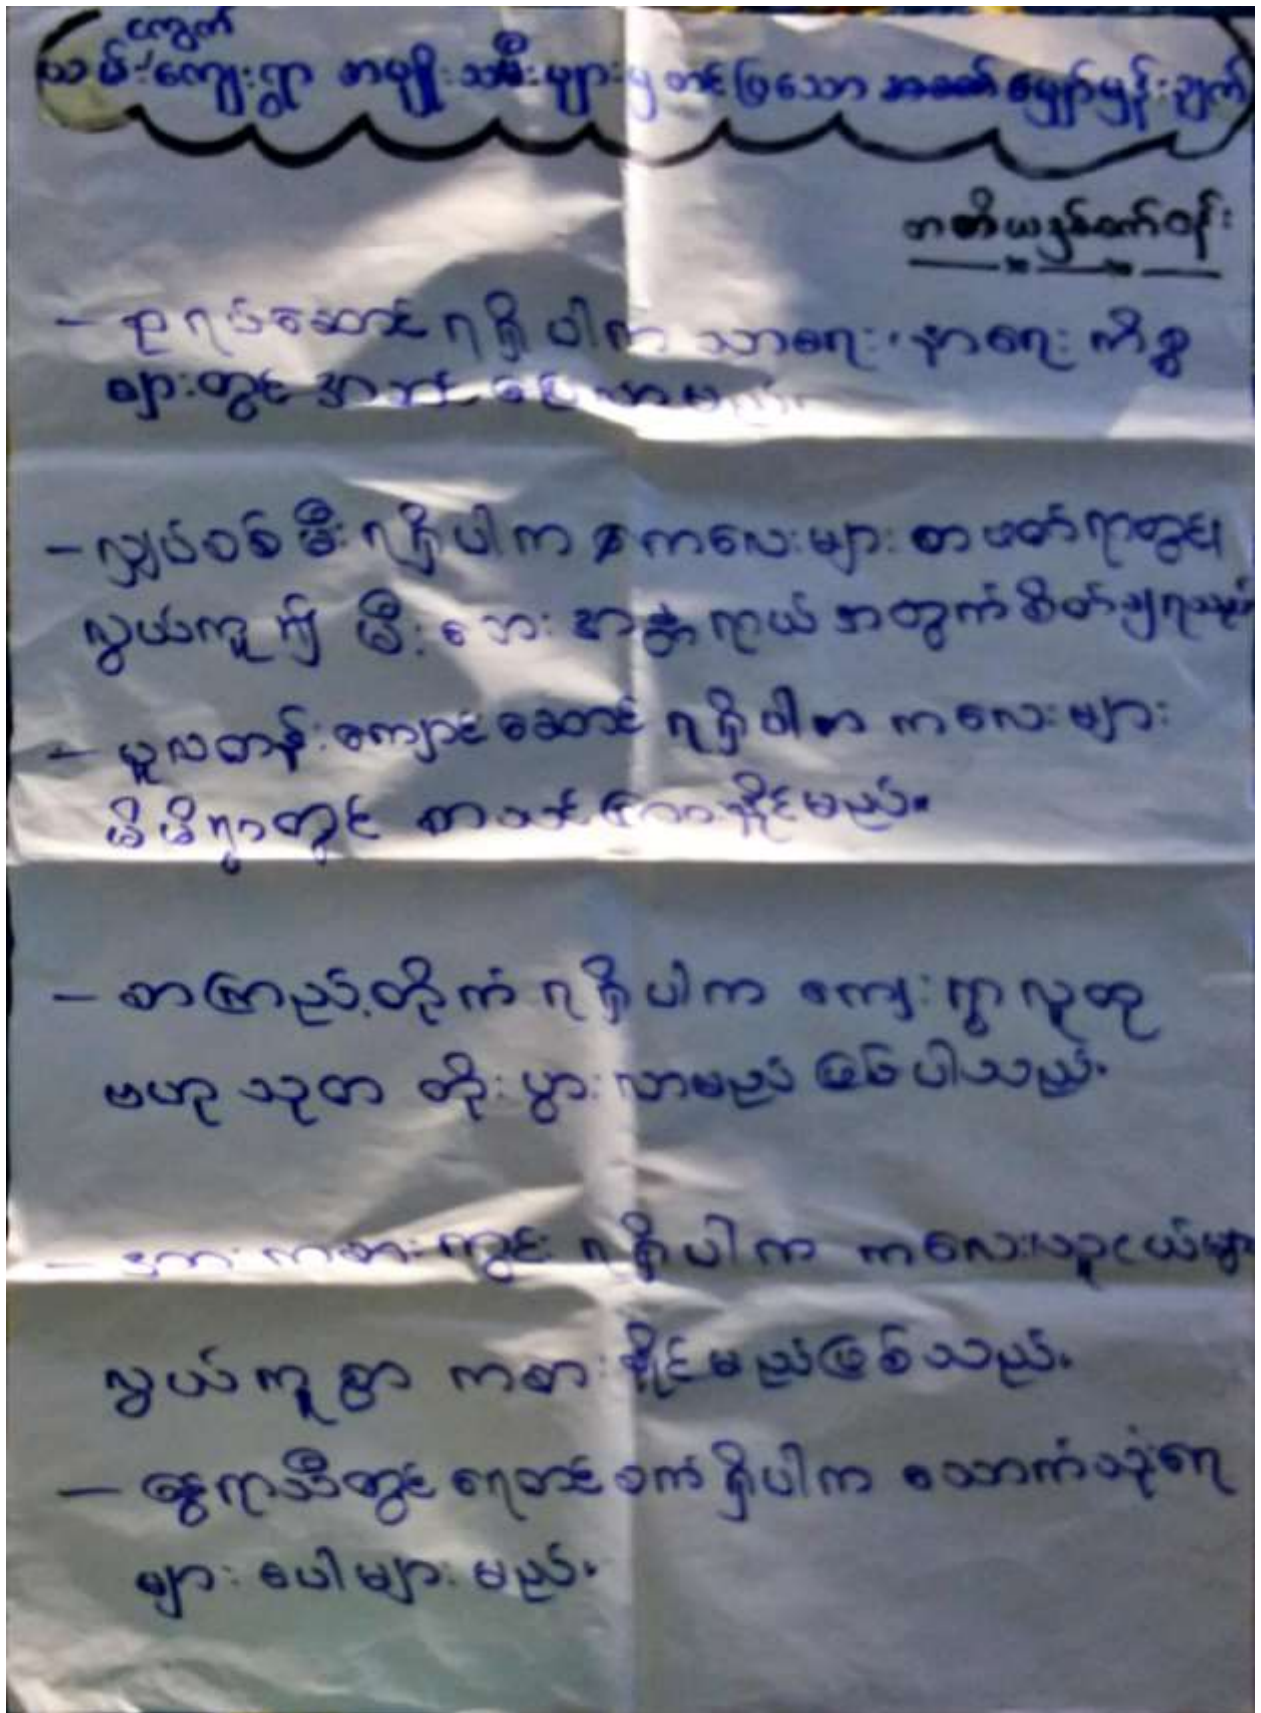 ကွေတ်
ယမ်း ကျေးရွာ အမျိုးသမီးများမှ တင်ပြသော အခတ် မျှော်မှန်းချက်
- ဓုရပ်ဆောင် ရရှိပါက သာရေး၊ နာရေး ကိစ္စ
များတွင်
- လျှပ်စစ်မီး ရရှိပါက ကလေးများ စာဖတ်ရာတွင်
လွယ်ကူ၍ မီးဘေး အန္တရာယ် အတွက် စိတ်ချရသည်
- မူလတန်းကျောင်းဆောင် ရရှိပါက ကလေးများ
မိမိရွာတွင် စာသင်ကြားနိုင်မည်။
- စာကြည့်တိုက် ရရှိပါက ကျေးရွာလူထု
ဗဟုသုတ တိုးပွားလာမည် ဖြစ်ပါသည်။
- ကစားကွင်း ရရှိပါက ကလေးလူငယ်များ
လွယ်ကူစွာ ကစားနိုင်မည်ဖြစ်သည်။
- နွေရာသီတွင် ရေတင်စက် ရှိပါက သောက်သုံးရေ
များ ပေါများမည်။